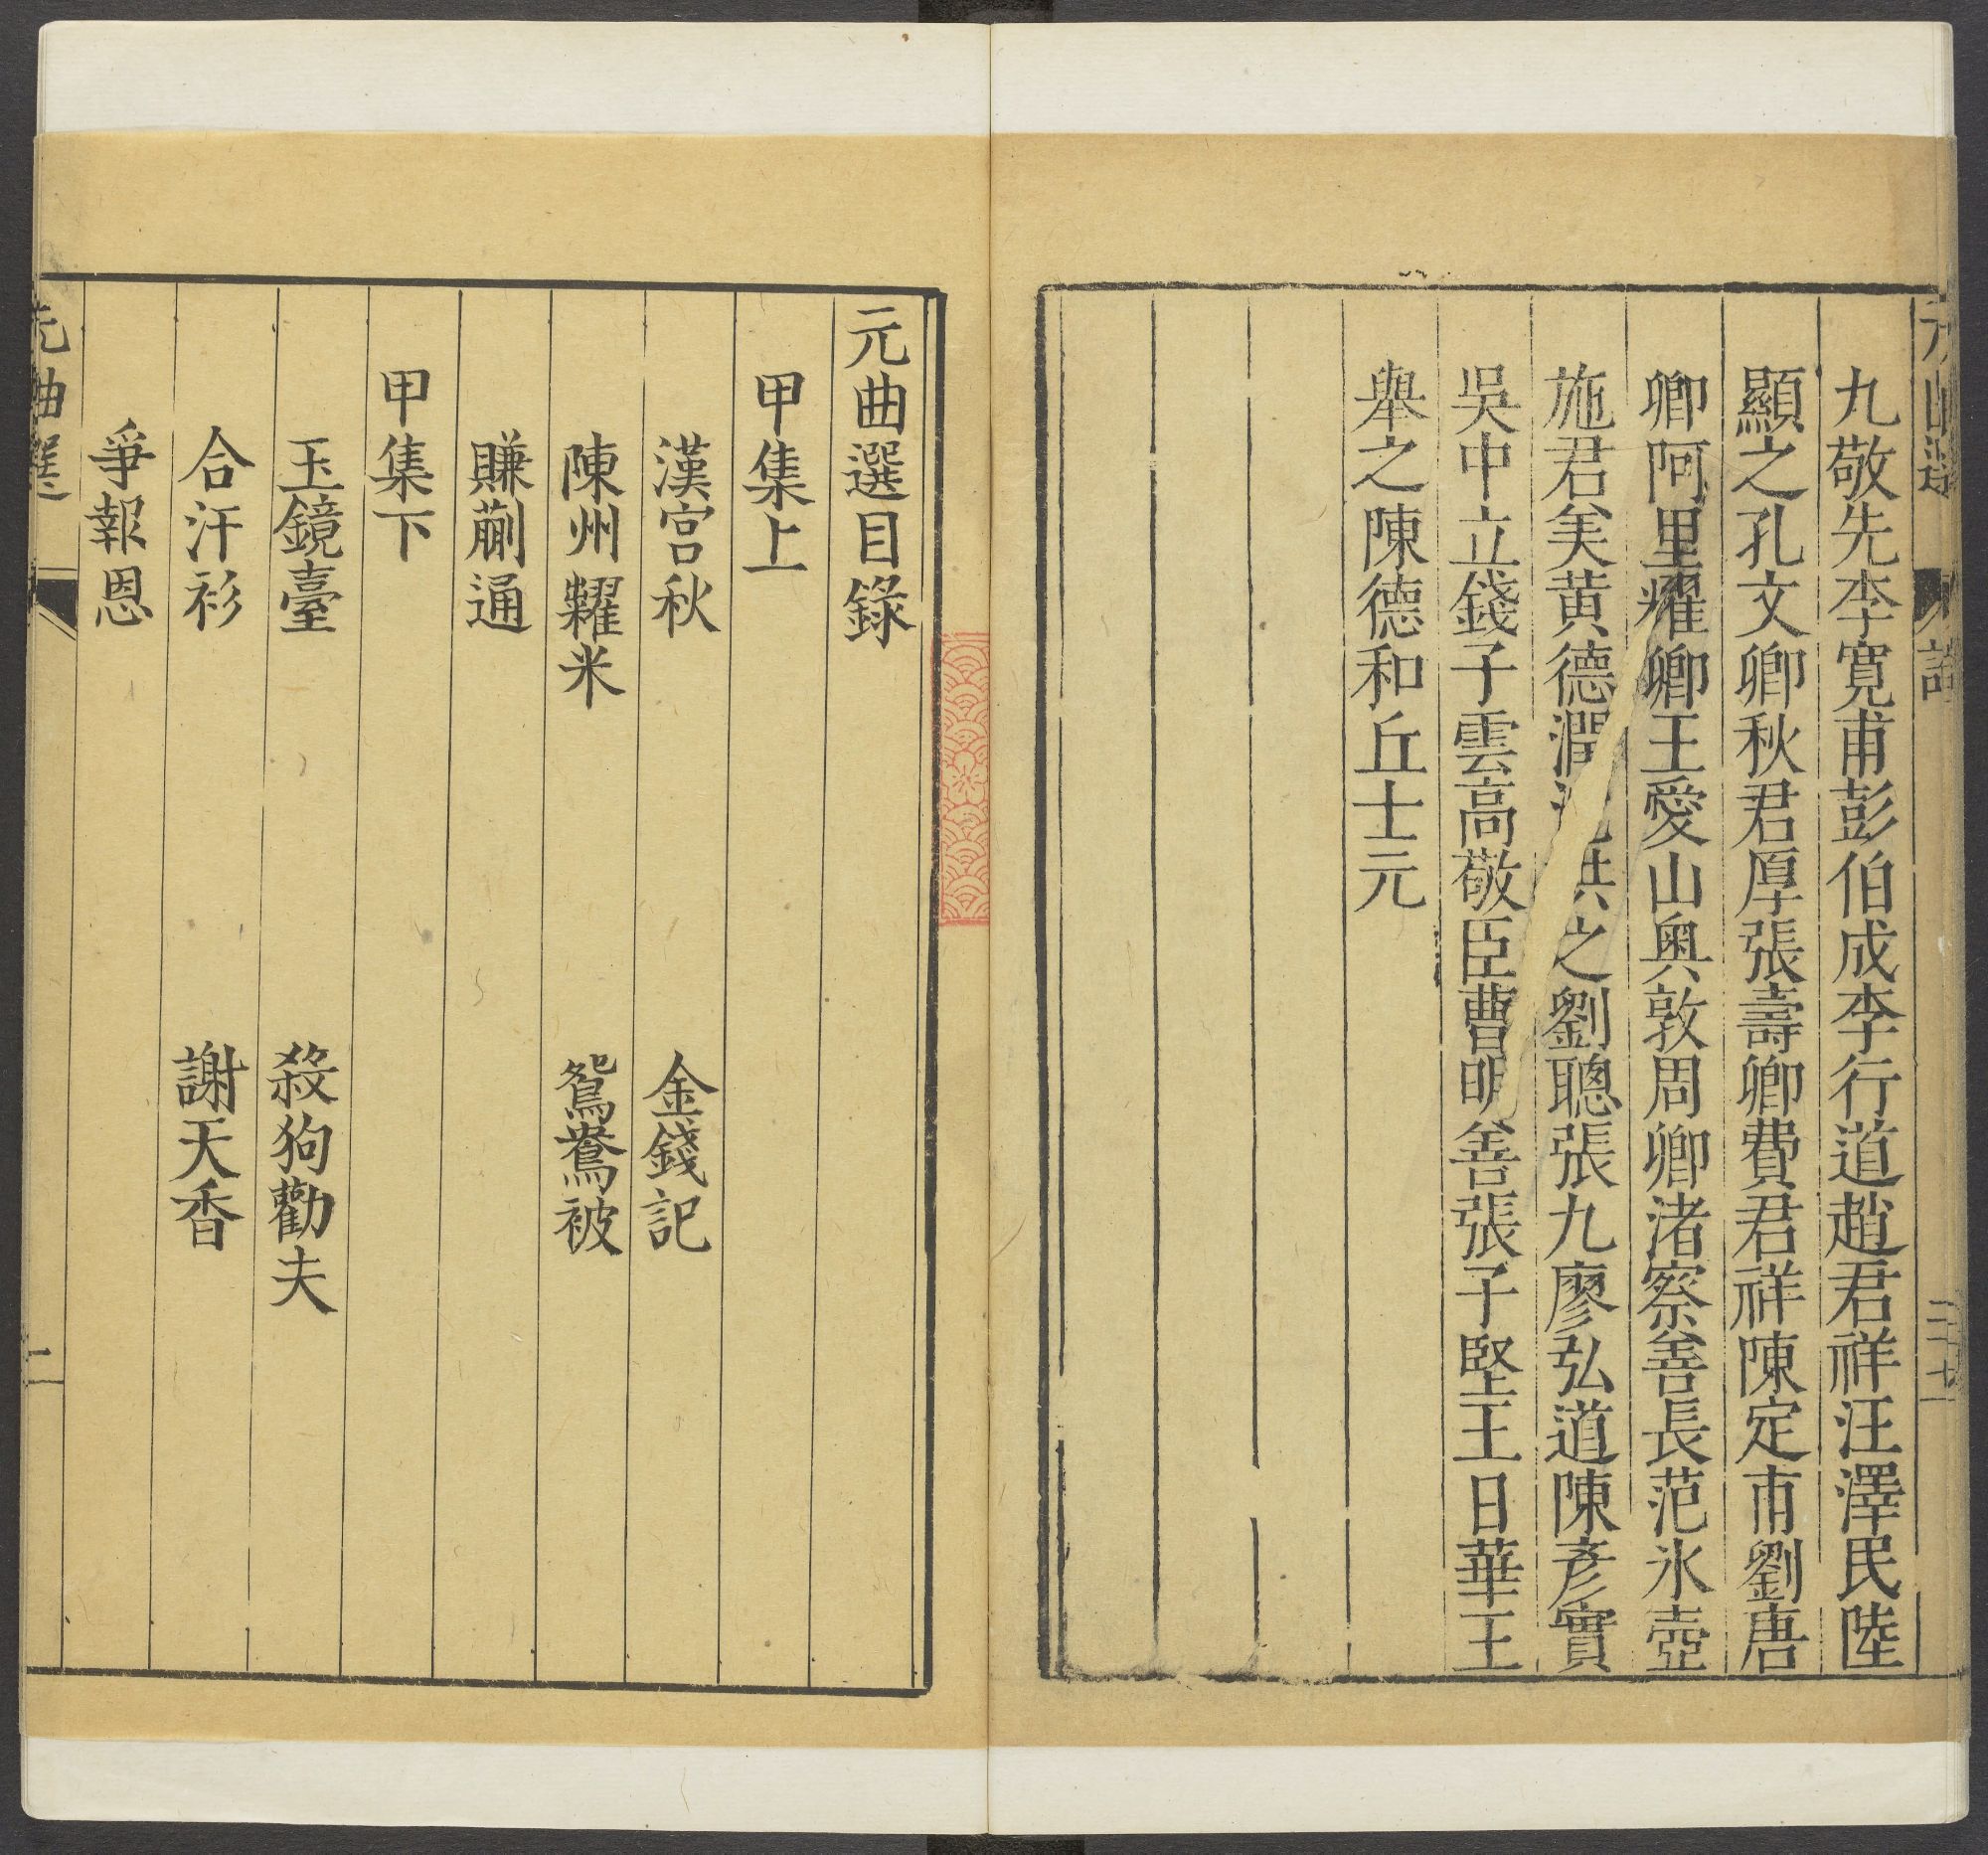 九敬先李寬甫彭伯成李行道趙君祥汪澤民陸
顯之孔文卿秋君厚張壽卿費君祥陳定甫劉唐
卿阿里耀卿王愛山奧敦周卿渚察善長范氷壺
施君美黃德潤洪之劉聰張九廖弘道陳彥實
吳中立錢子雲高敬臣曹明善張子堅王日華王
舉之陳德和丘士元
元曲選目錄
甲集上
漢宮秋 金錢記
陳州糶米 鴛鴦被
賺蒯通
甲集下
玉鏡臺 殺狗勸夫
合汗衫 謝天香
爭報恩
元曲選